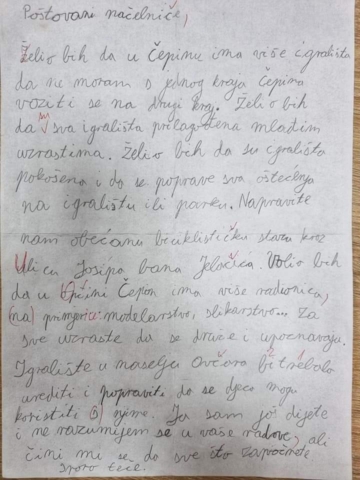 Poštovani načelniče,
Želio bih da u Čepinu ima više igrališta
da ne moram s jednog kraja Čepina
voziti se na drugi kraj. Želio bih
da su sva igrališta prilagođena mlađim
uzrastima. Želio bih da su igrališta
pokošena i da se poprave sva oštećenja
na igralištu ili parku. Napravite
nam obećanu biciklističku stazu kroz
Ulicu Josipa bana Jelačića. Volio bih
da u Općini Čepin ima više radionica,
(na) primjerice modelarstvo, slikarstvo... za
sve uzraste da se druže i upoznavaju.
Igralište u naselju Ovčara bi trebalo
urediti i popraviti da se djeca mogu
koristiti (s) njime. Ja sam još dijete
i ne razumijem se u vaše radove, ali
čini mi se da sve što započnete
sporo teče.